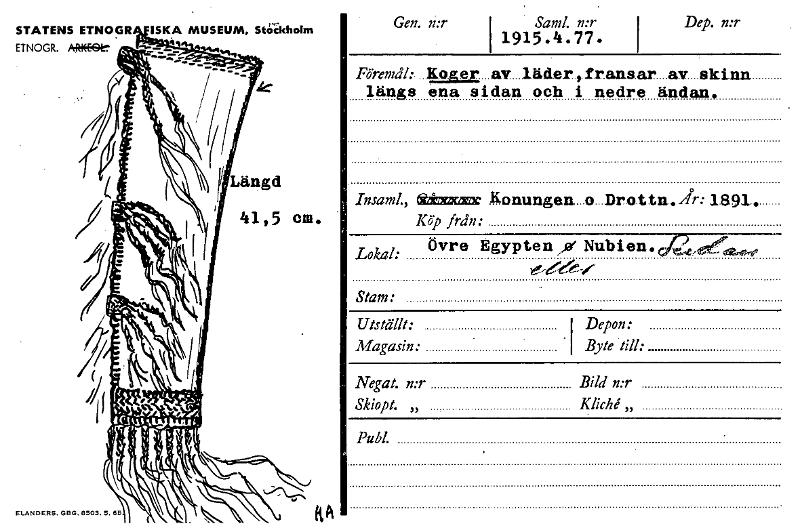 STATENS ETNOGRAFISKA MUSEUM, Stockholm
ETNOGR. ARKEOL.
Längd
41,5 cm.
ELANDERS, GBG, 8503, 5, 68.
HA
Gen. n:r
Saml. n:r
1915.4.77.
Dep. n:r
Föremål: Koger av läder,fransar av skinn
längs ena sidan och i nedre ändan.
Insaml., Konungen o Drottn. År: 1891.
Köp från:
Lokal: Övre Egypten ø Nubien. Sudan
eller
Stam:
Utställt: Depon:
Magasin: Byte till:
Negat. n:r Bild n:r
Skiopt. „ Kliché „
Publ.